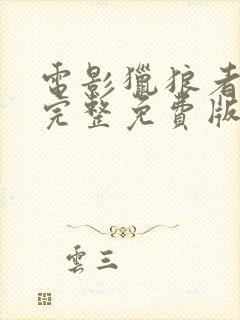 電影獵狼者
完整免費版
雲三